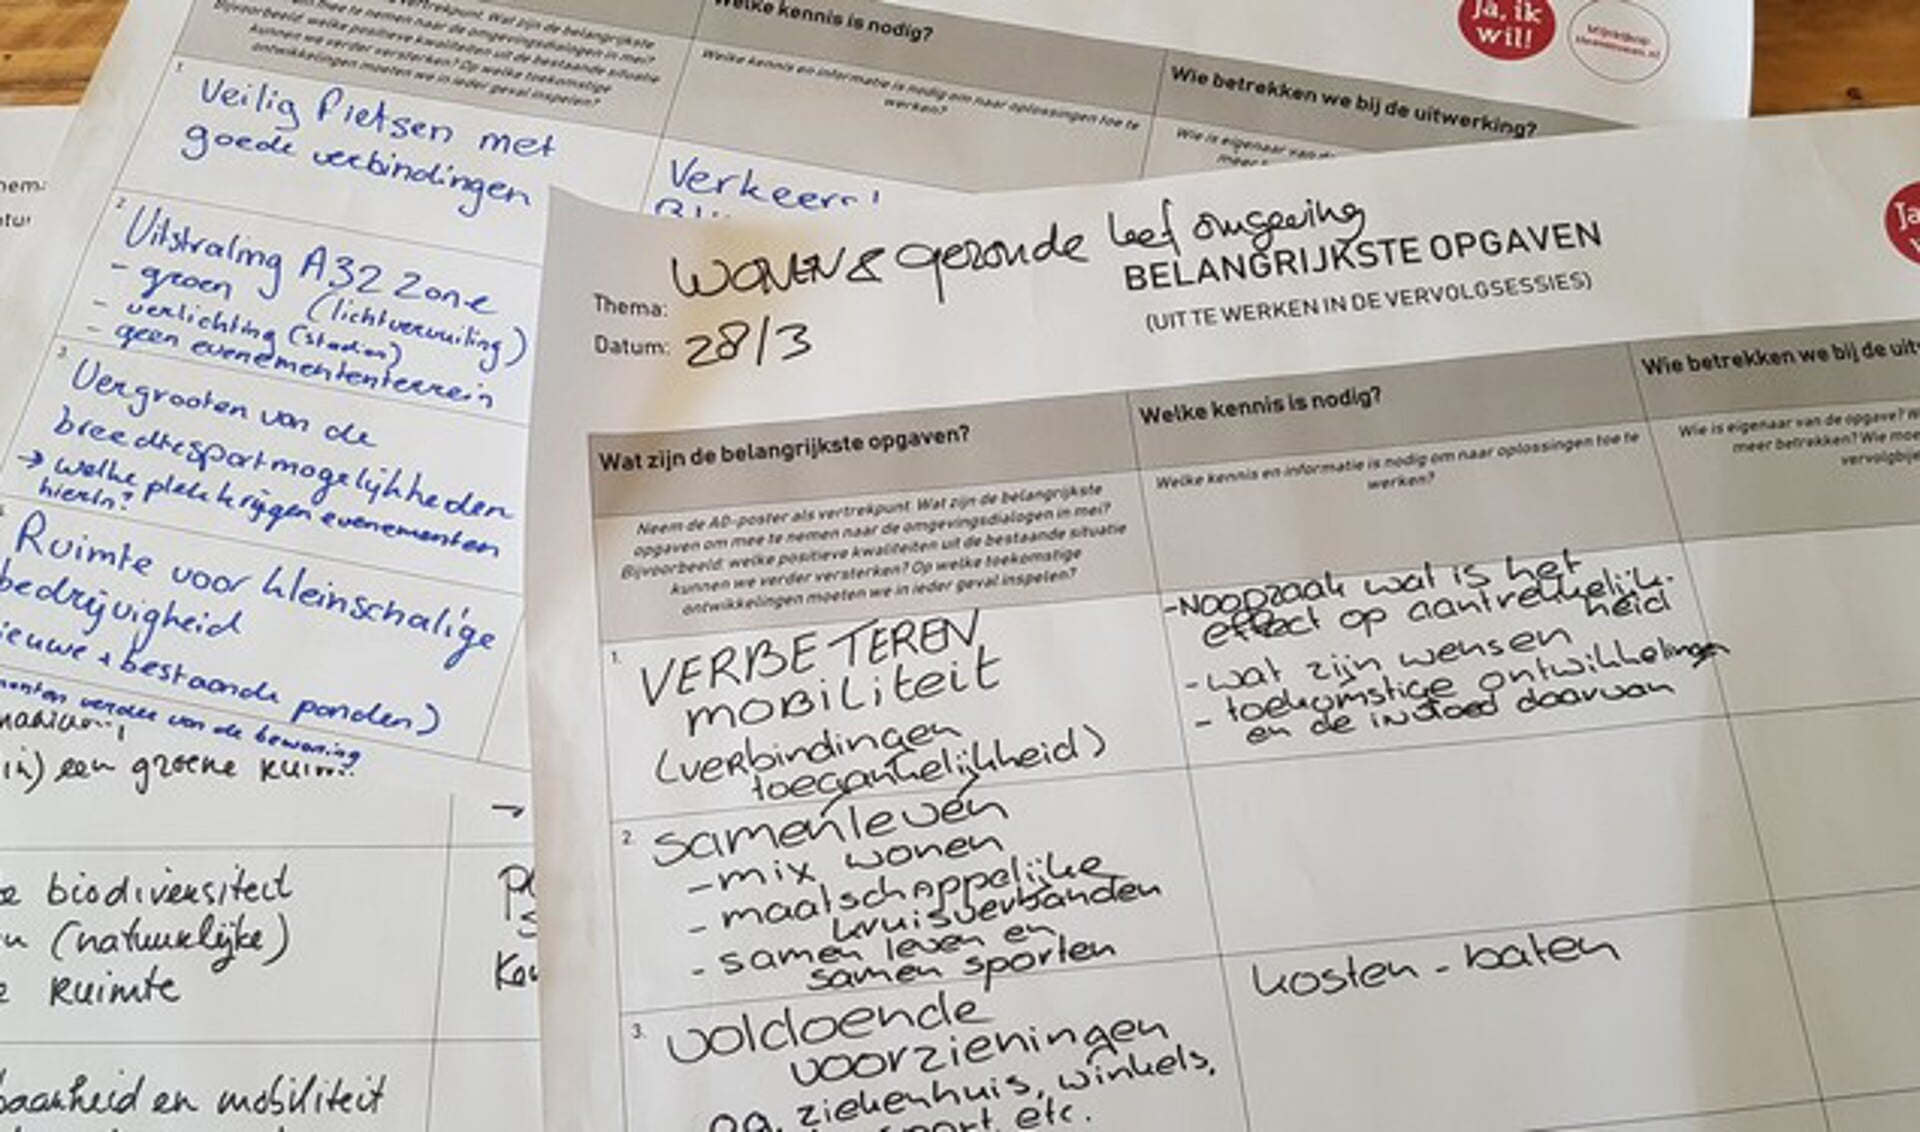 kunnen we verder versterken? Op welke toekomstige
ontwikkelingen moeten we in ieder geval inspelen?
Welke kennis is nodig?
Welke kennis en informatie is nodig om naar oplossingen toe te
werken?
Wie betrekken we bij de uitwerking?
Wie is eigenaar van
Ja, ik
wil!
1.
Veilig fietsen met
goede verbindingen
2.
Uitstraling A32 zone
- groen (lichtvervuiling)
- verlichting (stadion)
- geen evenemententerrein
3.
Vergrooten van de
breedtesportmogelijkheden
→ welke plek krijgen evenementen
hierin?
Ruimte voor kleinschalige
bedrijvigheid
nieuwe + bestaande panden)
verder van de bewoning
een groene
biodiversiteit
(natuurlijke)
ruimte
en mobiliteit
Thema: WONEN & gezonde leefomgeving
Datum: 28/3
BELANGRIJKSTE OPGAVEN
(UIT TE WERKEN IN DE VERVOLGSESSIES)
Wat zijn de belangrijkste opgaven?
Neem de AD-poster als vertrekpunt. Wat zijn de belangrijkste
opgaven om mee te nemen naar de omgevingsdialogen in mei?
Bijvoorbeeld: welke positieve kwaliteiten uit de bestaande situatie
kunnen we verder versterken? Op welke toekomstige
ontwikkelingen moeten we in ieder geval inspelen?
Welke kennis is nodig?
Welke kennis en informatie is nodig om naar oplossingen toe te
werken?
Wie betrekken we bij de
Wie is eigenaar van de opgave?
meer betrekken? Wie
1.
VERBETEREN
mobiliteit
(verbindingen
toegankelijkheid)
- Noodzaak wat is het
effect op aantrekkelijk-
heid
- wat zijn wensen
- toekomstige ontwikkelingen
en de invloed daarvan
2.
samenleven
- mix wonen
- maatschappelijke
kruisverbanden
- samen leven en
samen sporten
3.
voldoende
voorzieningen
o.a. ziekenhuis, winkels,
etc.
kosten - baten